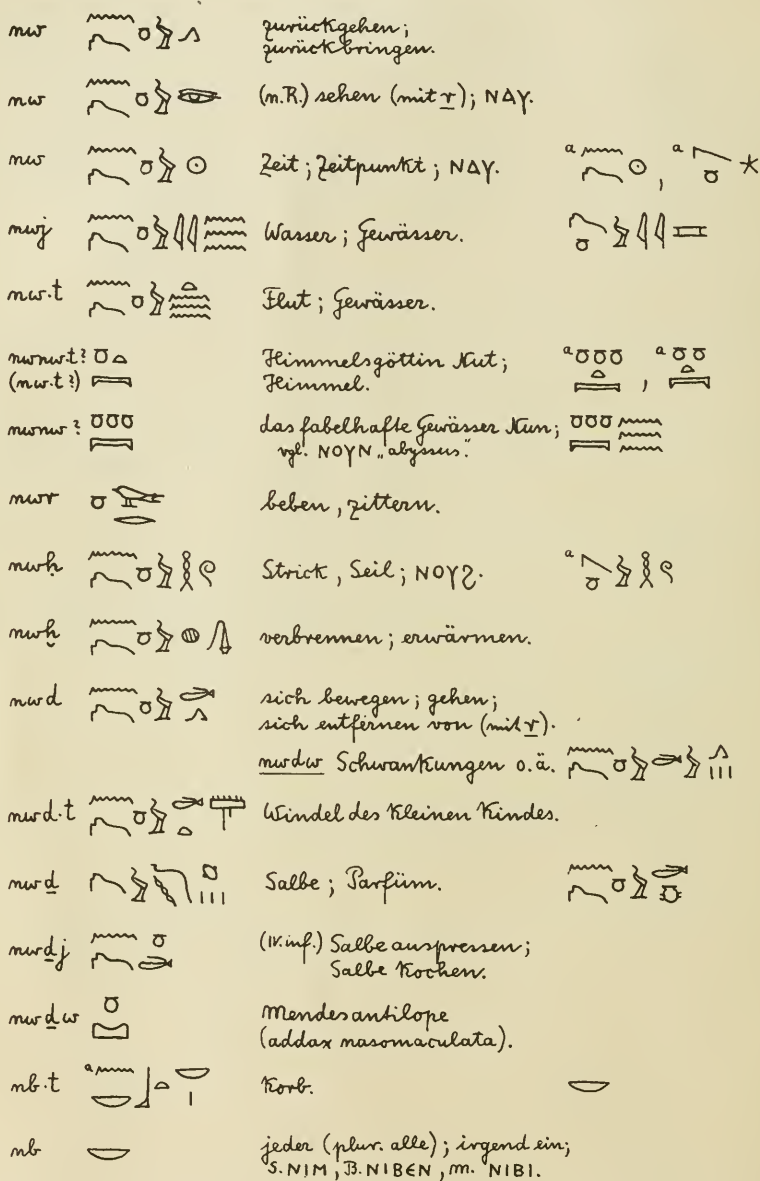 nw zurückgehen;
zurückbringen.
nw (n.R.) sehen (mit r); ⲚⲀⲨ.
nw Zeit; Zeitpunkt; ⲚⲀⲨ. a , a
nwj Wasser; Gewässer.
nw·t Flut; Gewässer.
nwnw·t? Himmelsgöttin Nut; a , a
(nw·t?) Himmel.
nwnw? das fabelhafte Gewässer Nun;
vgl. ⲚⲞⲨⲚ „abyssus“.
nwr beben, zittern.
nwḥ Strick, Seil; ⲚⲞⲨϨ. a
nwḫ verbrennen; erwärmen.
nwd sich bewegen; gehen;
sich entfernen von (mit r).
nwdw Schwankungen o.ä.
nwd·t Windel des kleinen Kindes.
nwḏ Salbe; Parfüm.
nwḏj (IV. inf.) Salbe auspressen;
Salbe kochen.
nwḏw Mendesantilope
(addax nasomaculata).
nb·t a Korb.
nb jeder (plur. alle); irgend ein;
S. ⲚⲒⲘ, B. ⲚⲒⲂⲈⲚ, M. ⲚⲒⲂⲒ.